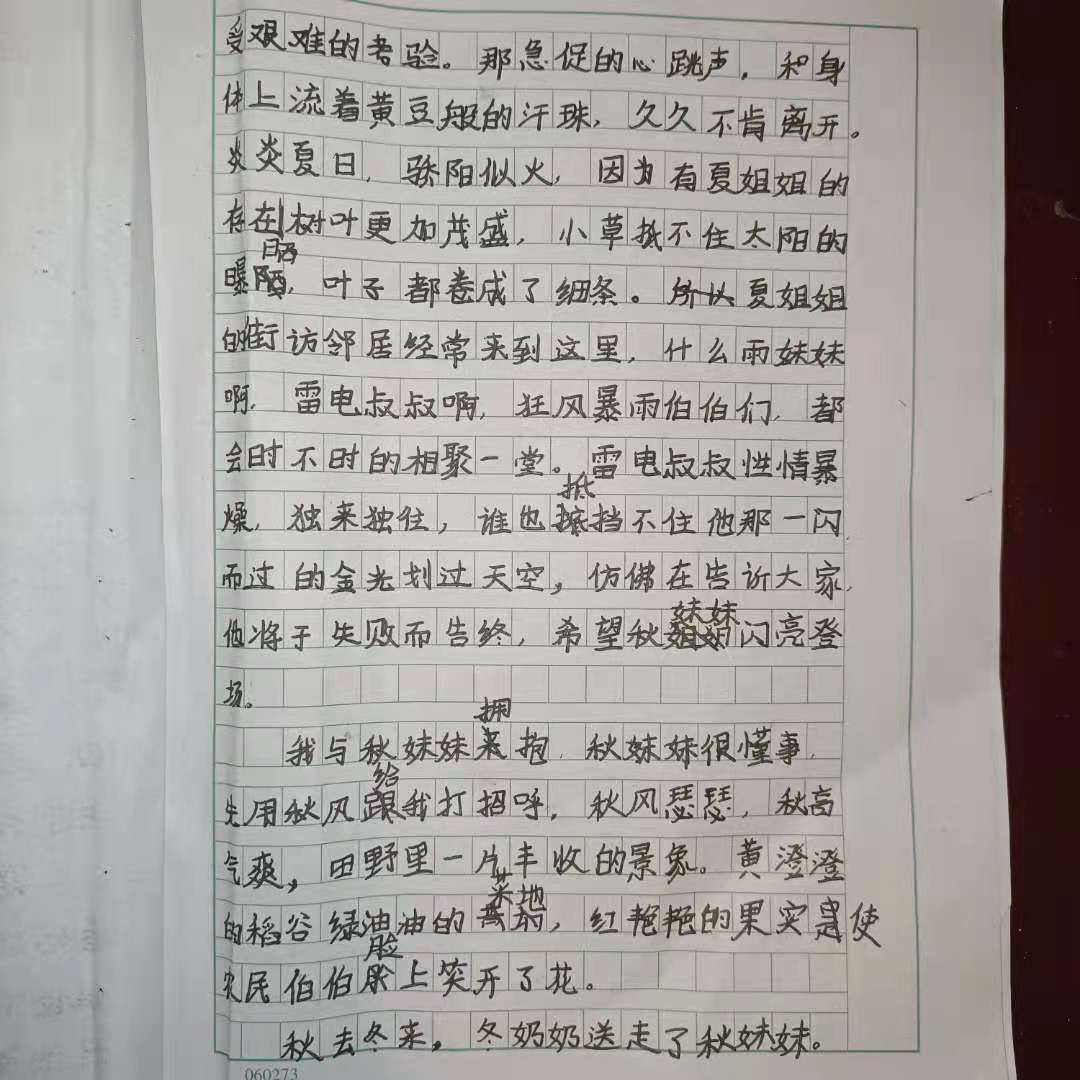 受艰难的考验。那急促的心跳声，和身
体上流着黄豆般的汗珠，久久不肯离开。
炎炎夏日，骄阳似火，因为有夏姐姐的
存在树叶更加茂盛，小草抵不住太阳的
曝晒，叶子都卷成了细条。所以夏姐姐
的街访邻居经常来到这里，什么雨妹妹
啊，雷电叔叔啊，狂风暴雨伯伯们，都
会时不时的相聚一堂。雷电叔叔性情暴
燥，独来独住，谁也抵挡不住他那一闪
而过的金光划过天空，仿佛在告诉大家，
他将于失败而告终，希望秋妹妹闪亮登
场。
我与秋妹妹拥抱，秋妹妹很懂事，
先用秋风给我打招呼，秋风瑟瑟，秋高
气爽，田野里一片丰收的景象。黄澄澄
的稻谷绿油油的菜地，红艳艳的果实使
农民伯伯脸上笑开了花。
秋去冬来，冬奶奶送走了秋妹妹。
060273